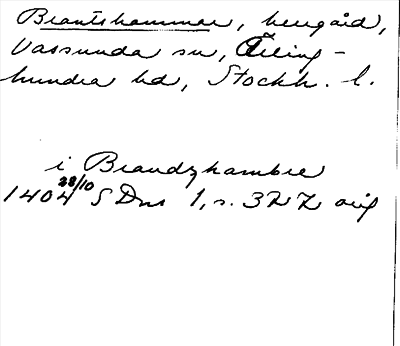 Brantshammar, herrgård,
Vassunda sn, Ärling-
hundra hd, Stockh. l.
i Brandzhambre
1404 28/10 SDns 1, s. 327 orig